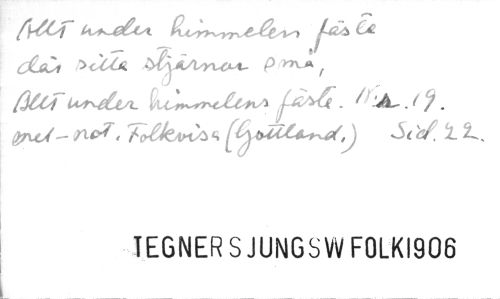 Allt under himmelens fäste
där sitta stjärnor små,
Allt under himmelens fäste. Nr. 19.
mel-not. Folkvisa (Gottland.) Sid. 22.
TEGNER SJUNGSW FOLK1906